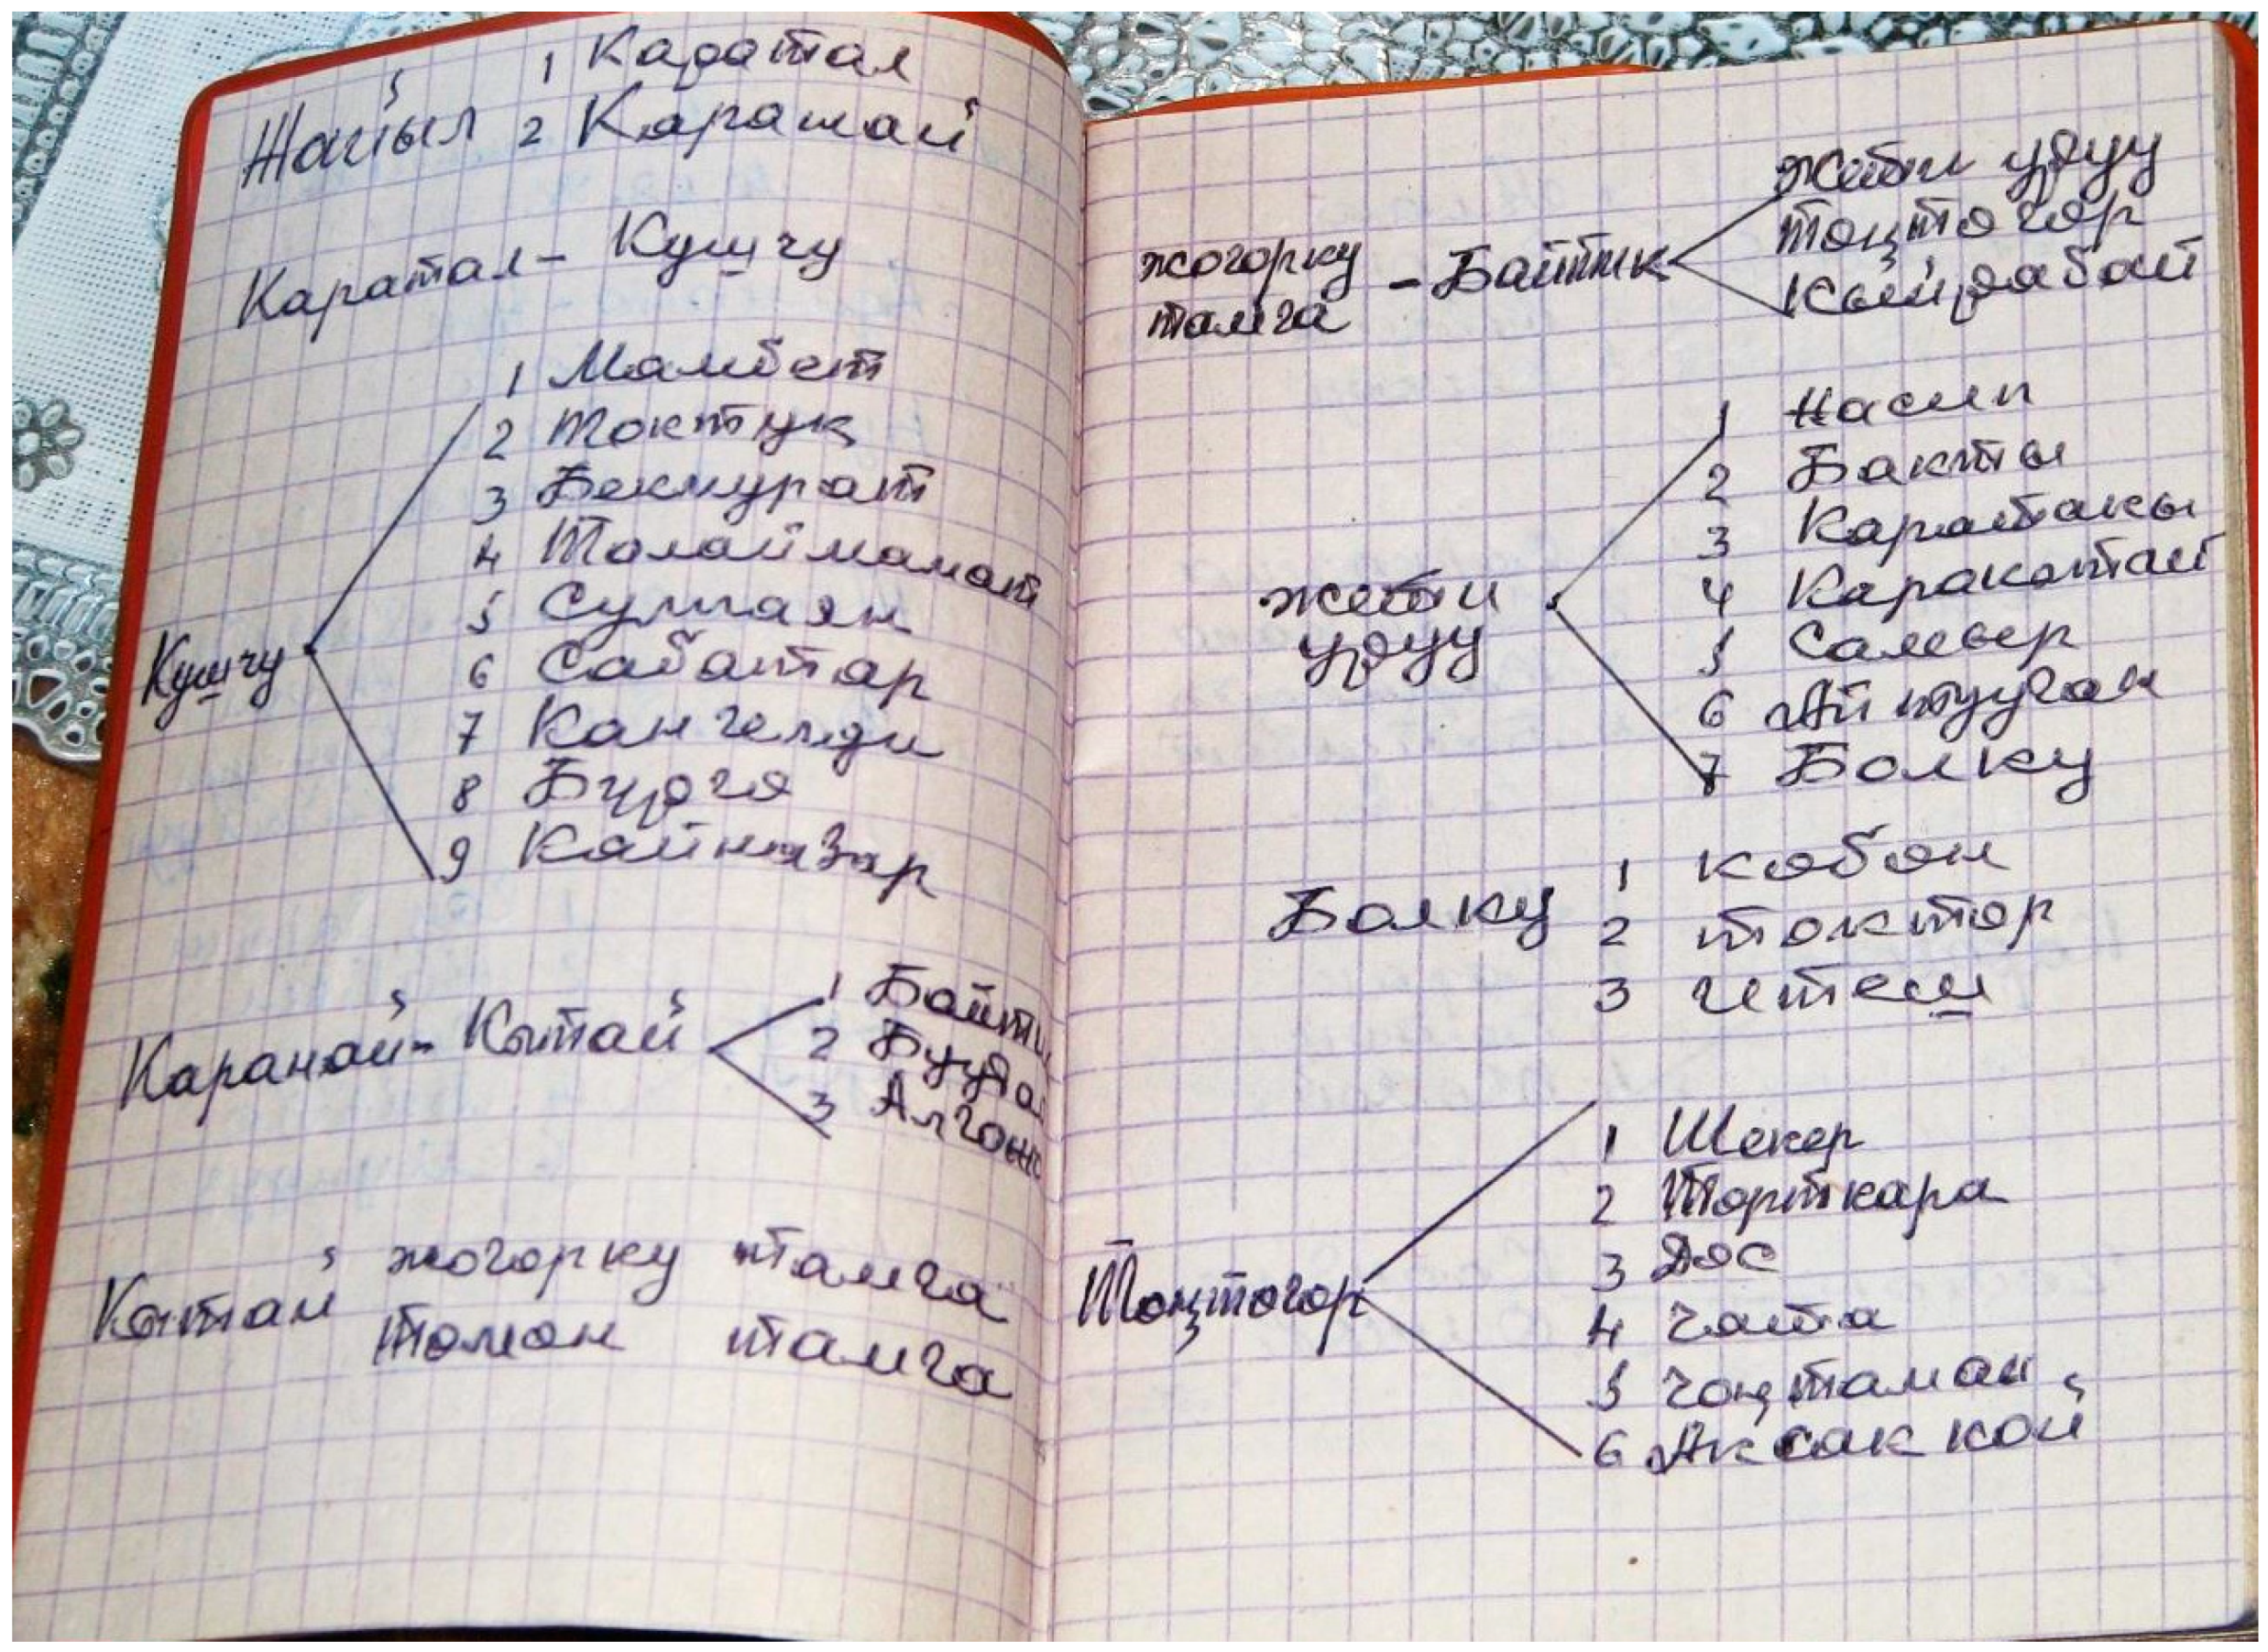 Жайыл 1 Каратал
2 Карамай
Каратал - Кушчу
Кушчу
1 Мамбет
2 Токтук
3 Бекмурат
4 Толоймамат
5 Султаян
6 Сабатар
7 Кангелди
8 Бүргө
9 Кайназар
Каранай - Кытай
1 Байти
2 Бууда
3 Алгожо
Кытай жогорку тамга
төмөн тамга
жогорку тамга - Байтик
Жети уруу
Тоңтогор
Кылдабай
жети уруу
1 Насип
2 Бакты
3 Каратакы
4 Каракотай
5 Самыр
6 Ай тууган
7 Бөлкү
Бөлкү
1 кобон
2 токтор
3 Четеш
Тоңтогор
1 Шекер
2 Торткара
3 Дос
4 Чапа
5 Чоңтаман
6 Аксак кой